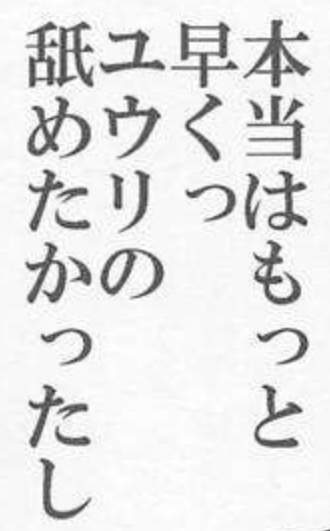 本当はもっと
早くっ
ユウリの
舐めたかったし